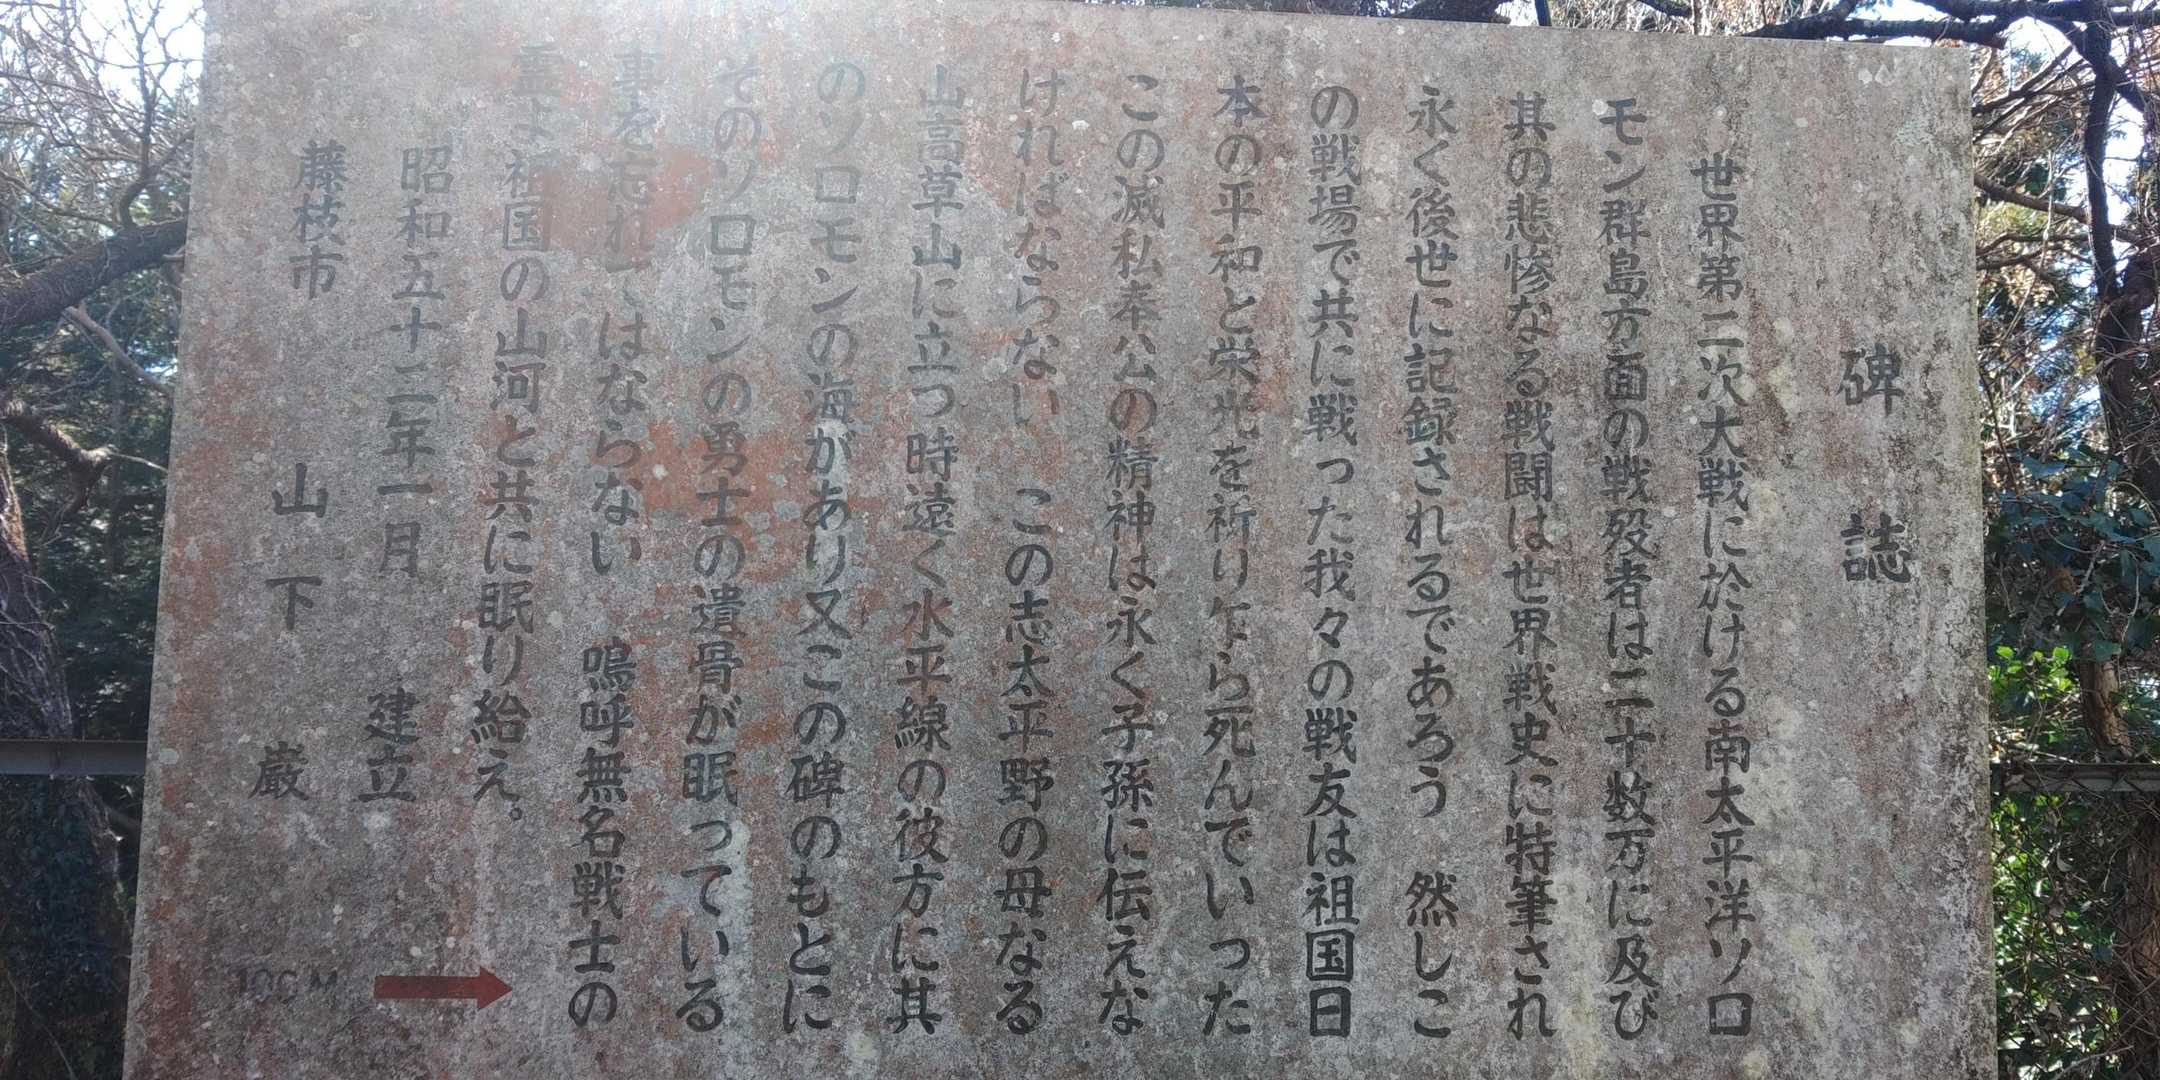 碑誌
世界第二次大戦に於ける南太平洋ソロ
モン群島方面の戦殁者は二十数万に及び
其の悲惨なる戦闘は世界戦史に特筆され
永く後世に記録されるであろう 然しこ
の戦場で共に戦った我々の戦友は祖国日
本の平和と栄光を祈り乍ら死んでいった
この滅私奉公の精神は永く子孫に伝えな
ければならない この志太平野の母なる
山高草山に立つ時遠く水平線の彼方に其
のソロモンの海があり又この碑のもとに
そのソロモンの勇士の遺骨が眠っている
事を忘れてはならない 嗚呼無名戦士の
霊よ祖国の山河と共に眠り給え。
昭和五十二年一月 建立
藤枝市 山下 巌
100M →